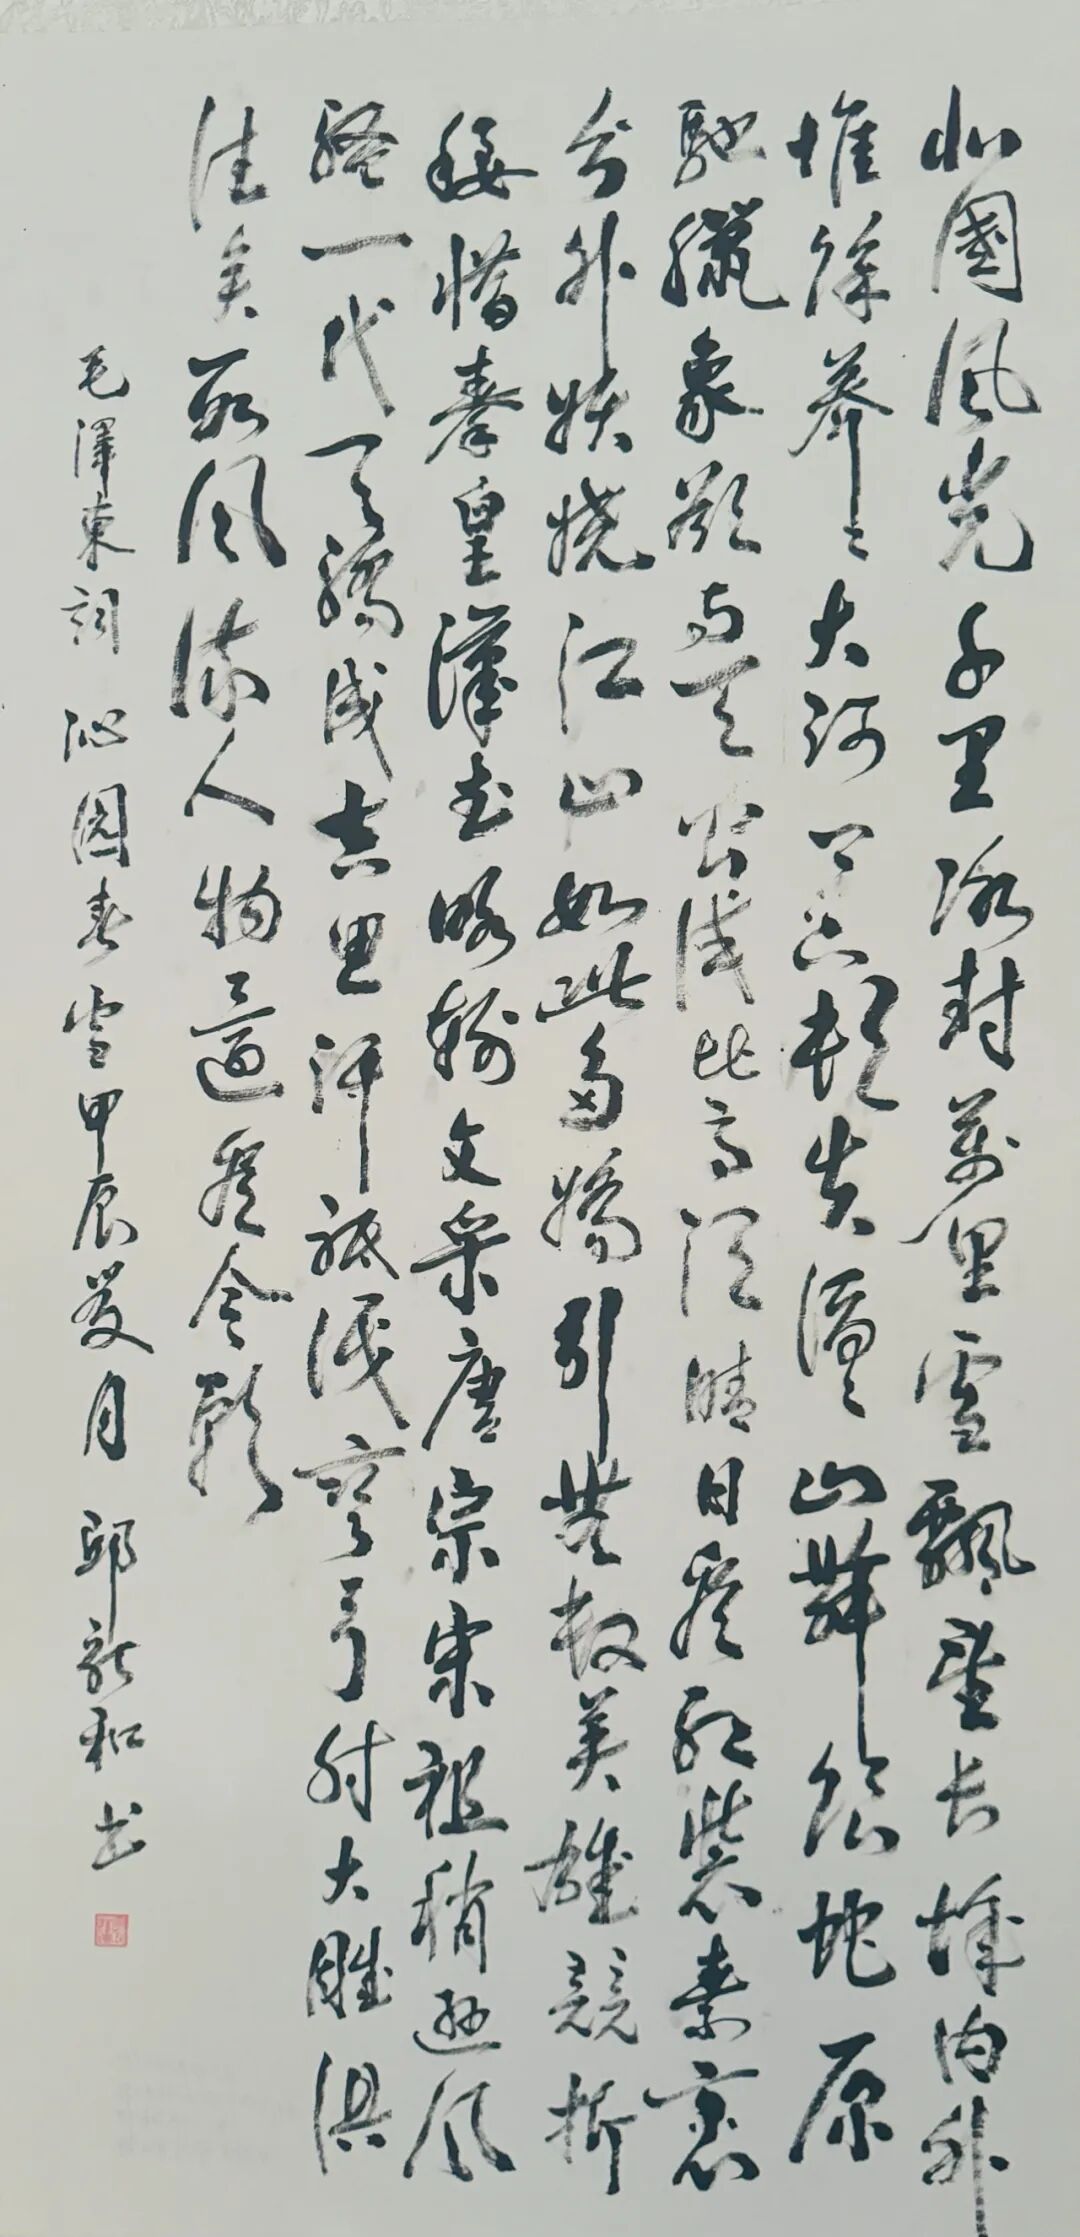 北國風光千里冰封萬里雪飄望長城內外
惟餘莽々大河上下頓失滔々山舞銀蛇原
馳臘象欲與天公試比高須晴日看紅裝素裹
分外妖嬈江山如此多嬌引無數英雄競折
腰惜秦皇漢武略輸文采唐宗宋祖稍遜風
騷一代天驕成吉思汗祇識彎弓射大雕俱
往矣數風流人物還看今朝
毛澤東詞 沁園春雪甲辰夏月 邱新和书